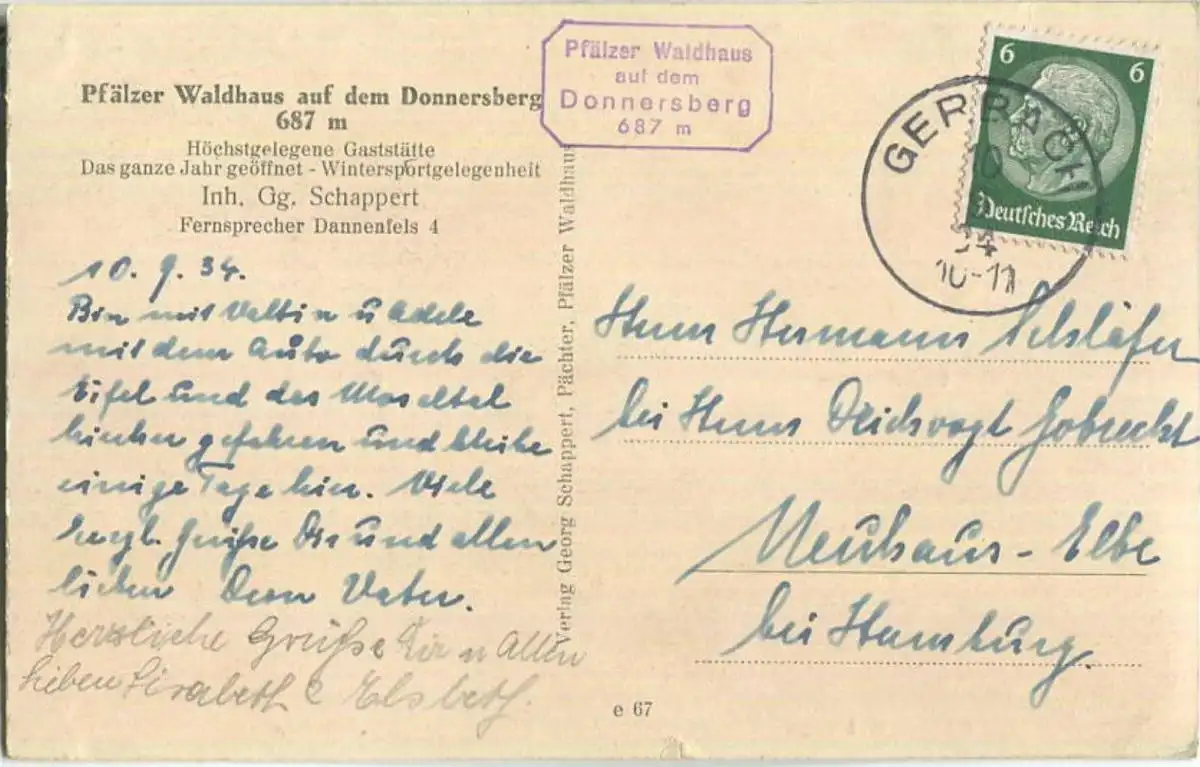 Pfälzer Waldhaus auf dem Donnersberg
687 m
Höchstgelegene Gaststätte
Das ganze Jahr geöffnet - Wintersportgelegenheit
Inh. Gg. Schappert
Fernsprecher Dannenfels 4
Pfälzer Waldhaus
auf dem
Donnersberg
687 m
6 6
Deutsches Reich
GERBACH
10
34
10-11
10. 9. 34.
Bin mit Valtin u Adele
mit dem Auto durch die
Eifel und das Moseltal
hierher gefahren und bleibe
einige Tage hier. Viele
herzl. Grüße Dir und allen
lieben Dein Vater.
Herzliche Grüße Dir u Allen
Lieben Elsbeth.
Verlag Georg Schappert, Pächter, Pfälzer Waldhaus
Herrn Hermann
bei Herrn Deichvogt Gobrecht
Neuhaus-Elbe
bei Hamburg.
e 67